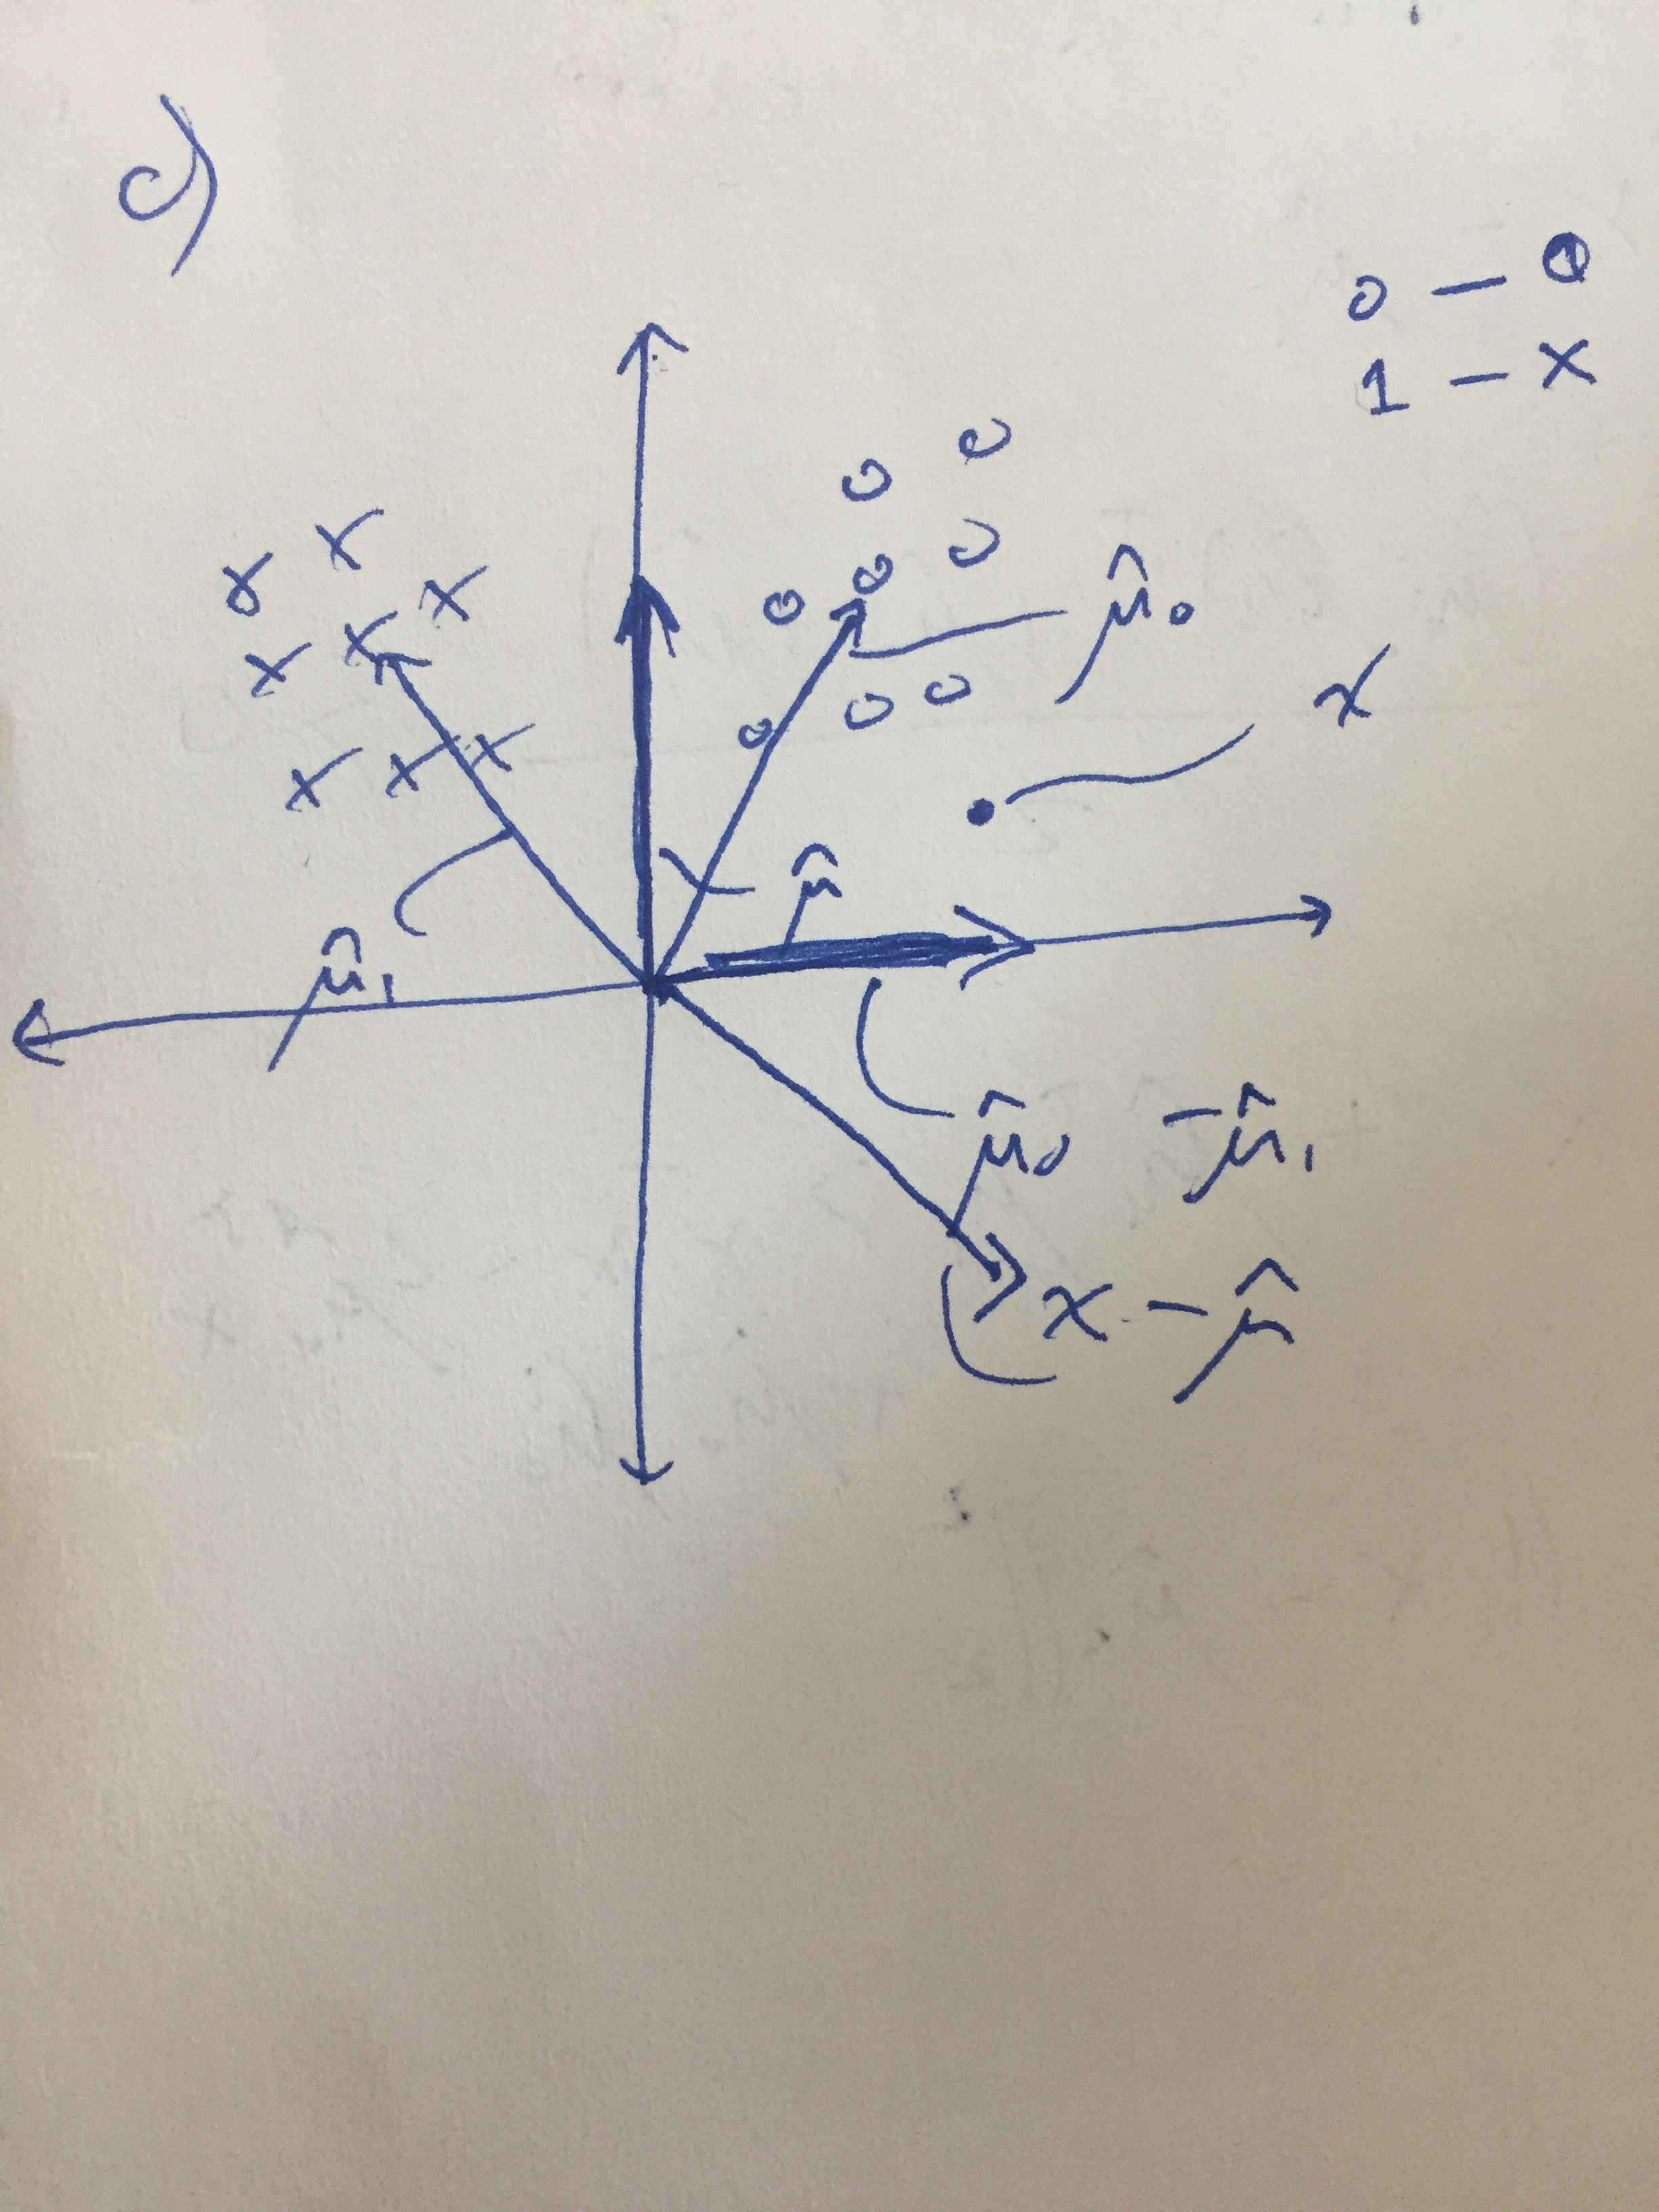 c)
0 — O
1 — X
μ̂₀
x
μ̂
μ̂₁
μ̂₀ - μ̂₁
x - μ̂